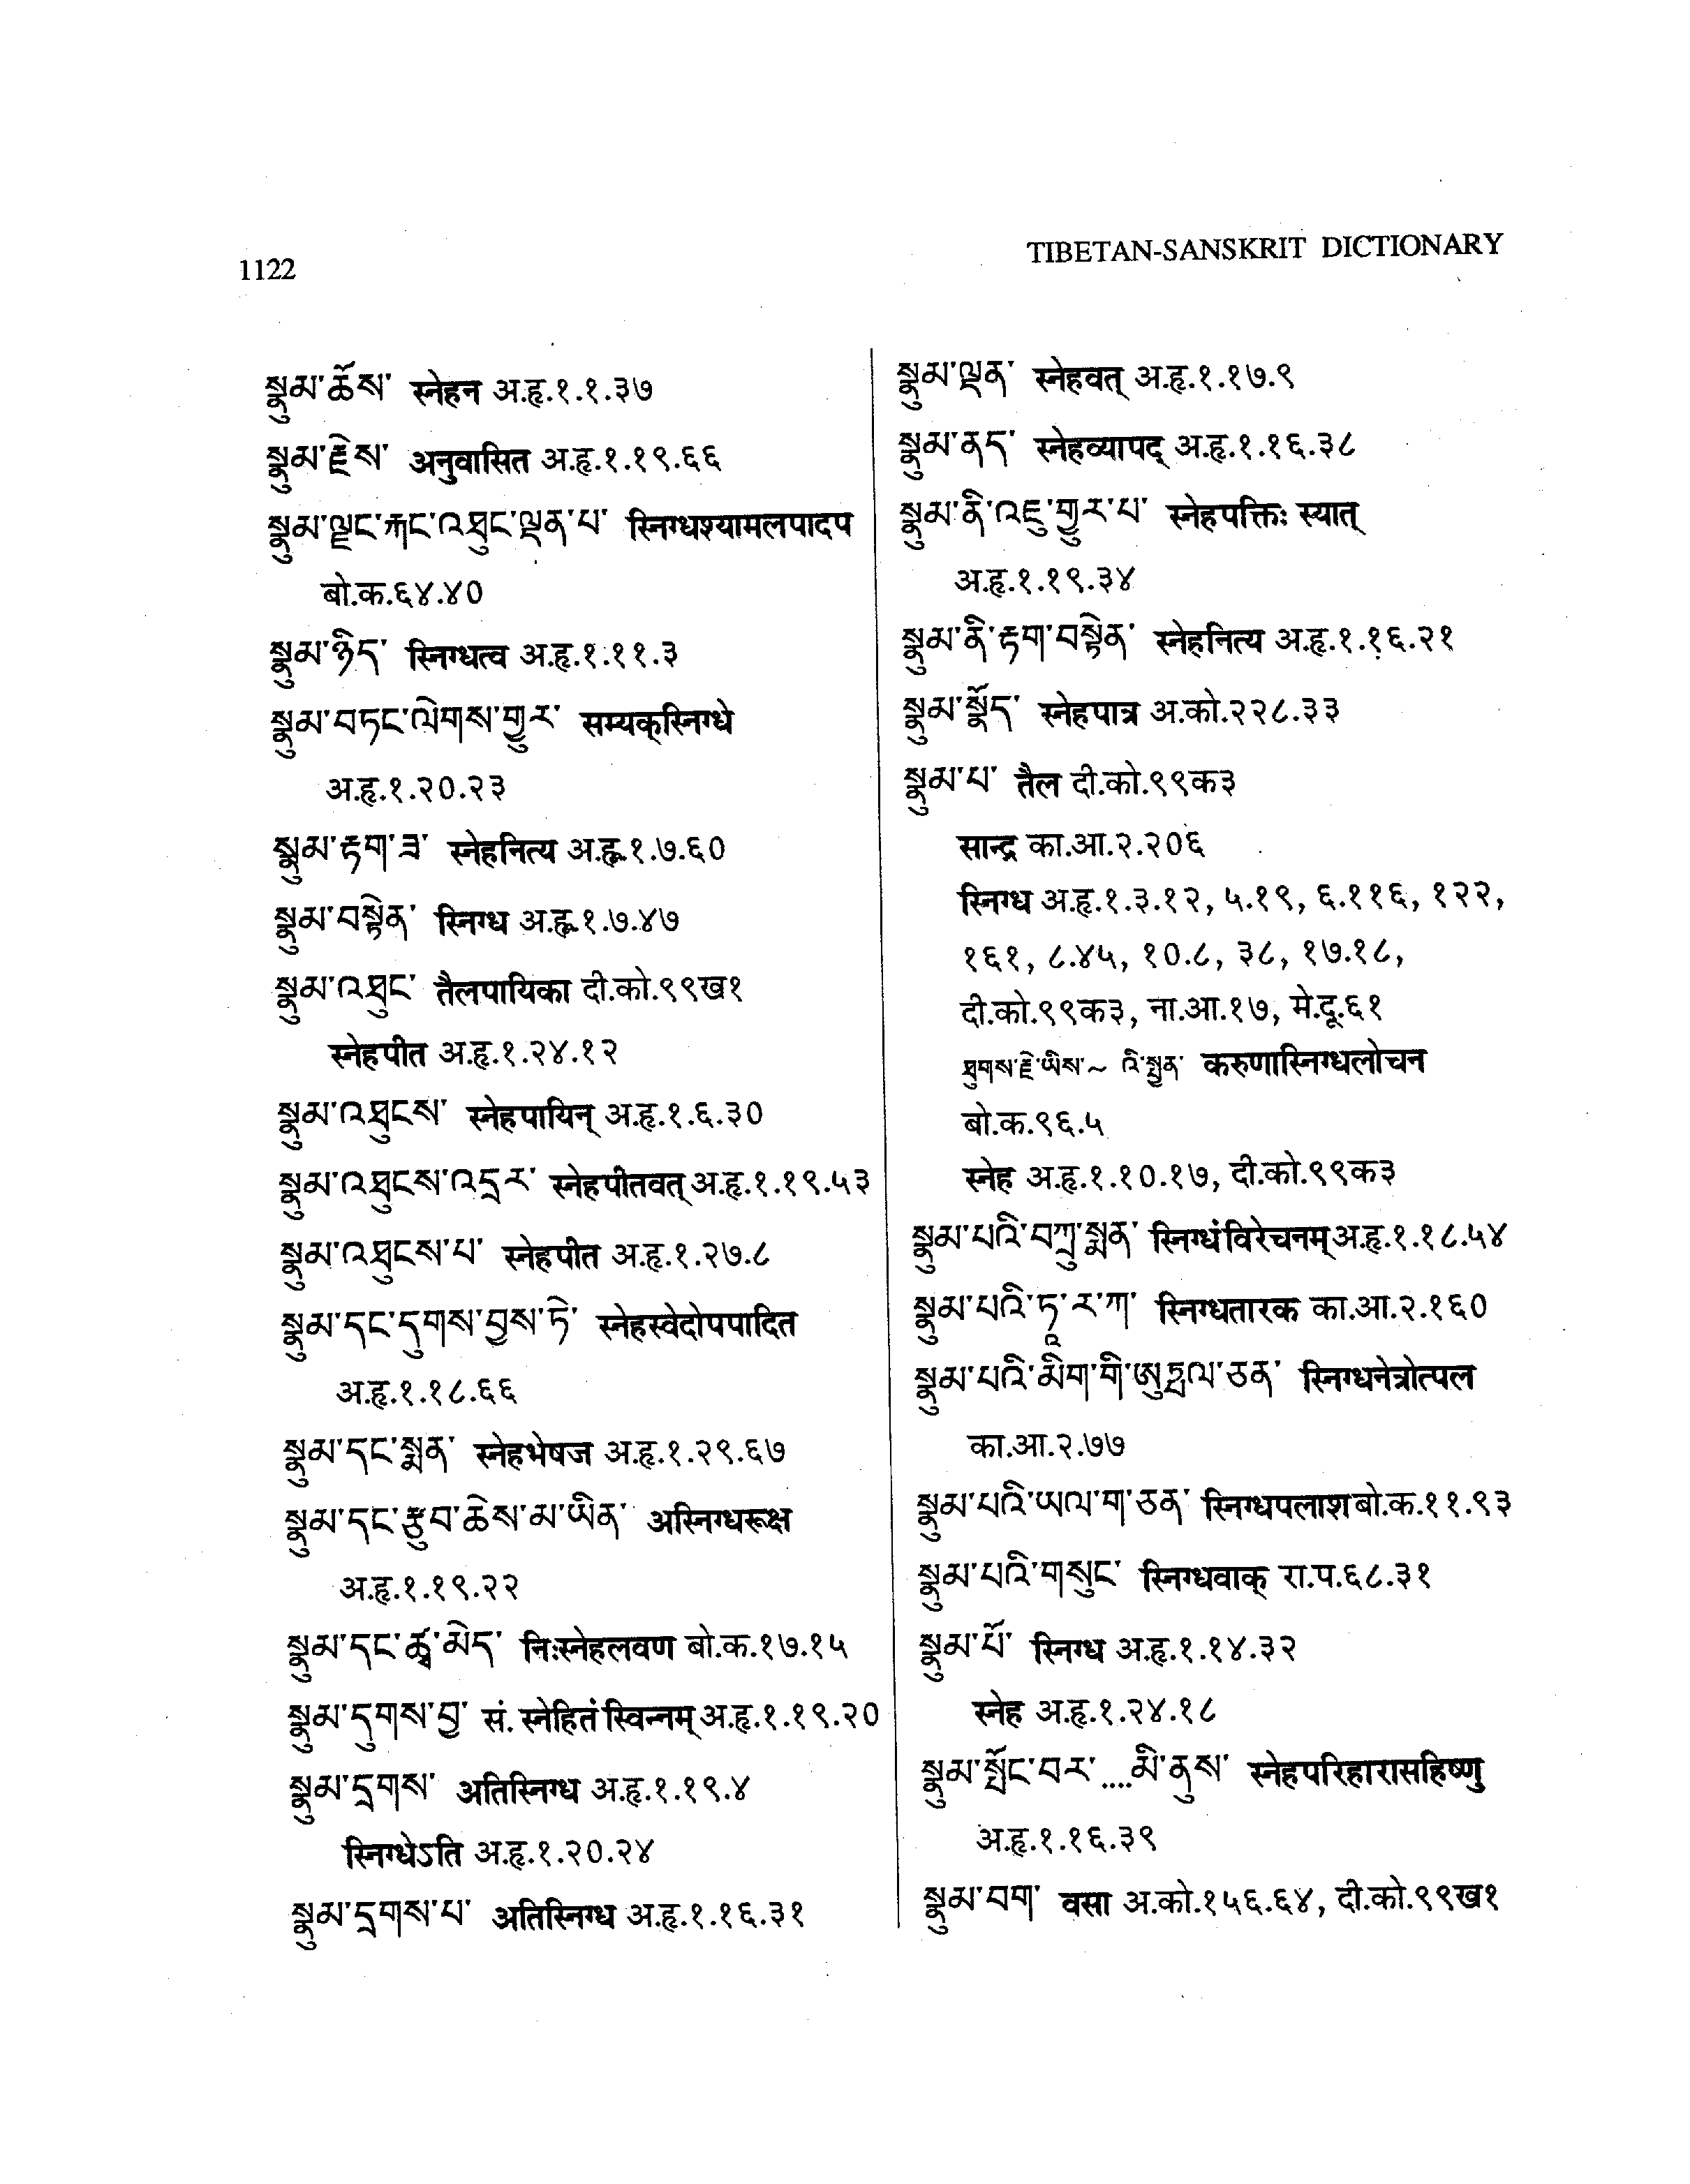 1122
TIBETAN-SANSKRIT DICTIONARY
སྣུམ་ཆོས་ स्नेहन अ.हृ.१.१.३७
སྣུམ་རྗེས་ अनुवासित अ.हृ.१.१९.६६
སྣུམ་ལྗང་རྐང་འཐུང་ལྡན་པ་ स्निग्धश्यामलपादप
बो.क.६४.४०
སྣུམ་ཉིད་ स्निग्धत्व अ.हृ.१.११.३
སྣུམ་བཏང་ལེགས་གྱུར་ सम्यक्स्निग्धे
अ.हृ.१.२०.२३
སྣུམ་རྟག་ཟ་ स्नेहनित्य अ.हृ.१.७.६०
སྣུམ་བསྟེན་ स्निग्ध अ.हृ.१.७.४७
སྣུམ་འཐུང་ तैलपायिका दी.को.९९ख१
स्नेहपीत अ.हृ.१.२४.१२
སྣུམ་འཐུངས་ स्नेहपायिन् अ.हृ.१.६.३०
སྣུམ་འཐུངས་འདྲར་ स्नेहपीतवत् अ.हृ.१.१९.५३
སྣུམ་འཐུངས་པ་ स्नेहपीत अ.हृ.१.२७.८
སྣུམ་དང་དུགས་བྱས་ཏེ་ स्नेहस्वेदोपपादित
अ.हृ.१.१८.६६
སྣུམ་དང་སྨན་ स्नेहभेषज अ.हृ.१.२९.६७
སྣུམ་དང་རྩུབ་ཆེས་མ་ཡིན་ अस्निग्धरूक्ष
अ.हृ.१.१९.२२
སྣུམ་དང་ཚྭ་མེད་ निःस्नेहलवण बो.क.१७.१५
སྣུམ་དུགས་བྱ་ सं. स्नेहितं स्विन्नम् अ.हृ.१.१९.२०
སྣུམ་དྲགས་ अतिस्निग्ध अ.हृ.१.१९.४
स्निग्धेऽति अ.हृ.१.२०.२४
སྣུམ་དྲགས་པ་ अतिस्निग्ध अ.हृ.१.१६.३१
སྣུམ་ལྡན་ स्नेहवत् अ.हृ.१.१७.९
སྣུམ་ནད་ स्नेहव्यापद् अ.हृ.१.१६.३८
སྣུམ་ནི་འཇུ་གྱུར་པ་ स्नेहपक्तिः स्यात्
अ.हृ.१.१९.३४
སྣུམ་ནི་རྟག་བསྟེན་ स्नेहनित्य अ.हृ.१.१६.२१
སྣུམ་སྣོད་ स्नेहपात्र अ.को.२२८.३३
སྣུམ་པ་ तैल दी.को.९९क३
सान्द्र का.आ.२.२०६
स्निग्ध अ.हृ.१.३.१२, ५.१९, ६.११६, १२२,
१६१, ८.४५, १०.८, ३८, १७.१८,
दी.को.९९क३, ना.आ.१७, मे.दू.६१
ཐུགས་རྗེ་ཡིས་~ འི་སྤྱན་ करुणास्निग्धलोचन
बो.क.९६.५
स्नेह अ.हृ.१.१०.१७, दी.को.९९क३
སྣུམ་པའི་བཀྲུ་སྨན་ स्निग्धं विरेचनम् अ.हृ.१.१८.५४
སྣུམ་པའི་ཏཱ་ར་ཀ་ स्निग्धतारक का.आ.२.१६०
སྣུམ་པའི་མིག་གི་ཨུཏྤལ་ཅན་ स्निग्धनेत्रोत्पल
का.आ.२.७७
སྣུམ་པའི་ཡལ་ག་ཅན་ स्निग्धपलाश बो.क.११.९३
སྣུམ་པའི་གསུང་ स्निग्धवाक् रा.प.६८.३१
སྣུམ་པོ་ स्निग्ध अ.हृ.१.१४.३२
स्नेह अ.हृ.१.२४.१८
སྣུམ་སྤོང་བར་....མི་ནུས་ स्नेहपरिहारासहिष्णु
अ.हृ.१.१६.३९
སྣུམ་བག་ वसा अ.को.१५६.६४, दी.को.९९ख१